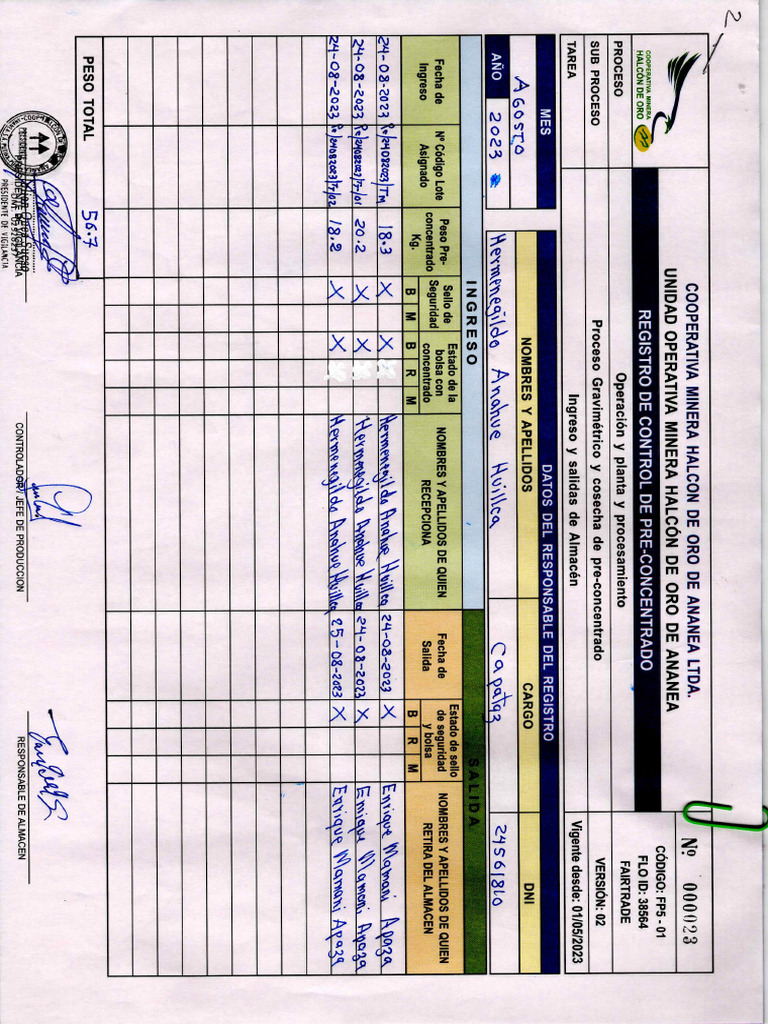 2
COOPERATIVA MINERA
HALCÓN DE ORO
COOPERATIVA MINERA HALCON DE ORO DE ANANEA LTDA.
UNIDAD OPERATIVA MINERA HALCÓN DE ORO DE ANANEA
REGISTRO DE CONTROL DE PRE-CONCENTRADO
Nº 000023
CÓDIGO: FP5 - 01
FLO ID: 38564
FAIRTRADE
PROCESO Operación y planta y procesamiento
SUB PROCESO Proceso Gravimétrico y cosecha de pre-concentrado
VERSIÓN: 02
TAREA Ingreso y salidas de Almacén
Vigente desde: 01/05/2023
MES AGOSTO
AÑO 2023
DATOS DEL RESPONSABLE DEL REGISTRO
NOMBRES Y APELLIDOS CARGO DNI
Hermenegildo Anahue Huillca Capataz 24561810
INGRESO SALIDA
Fecha de Ingreso Nº Código Lote Asignado Peso Pre-concentrado Kg. Sello de Seguridad Estado de la bolsa con concentrado NOMBRES Y APELLIDOS DE QUIEN RECEPCIONA Fecha de Salida Estado de sello de seguridad y bolsa NOMBRES Y APELLIDOS DE QUIEN RETIRA DEL ALMACEN
B M B R M B R M
24-08-2023 Pc/24082023/TM 18.3 X X Hermenegildo Anahue Huillca 24-08-2023 X Enrique Mamani Apaza
24-08-2023 Pc/24082023/T/01 20.2 X X Hermenegildo Anahue Huillca 24-08-2023 X Enrique Mamani Apaza
24-08-2023 Pc/24082023/T/02 18.2 X X Hermenegildo Anahue Huillca 25-08-2023 X Enrique Mamani Apaza
PESO TOTAL 56.7
PRESIDENTE DE VIGILANCIA
CONTROLADOR/ JEFE DE PRODUCCION
RESPONSABLE DE ALMACEN